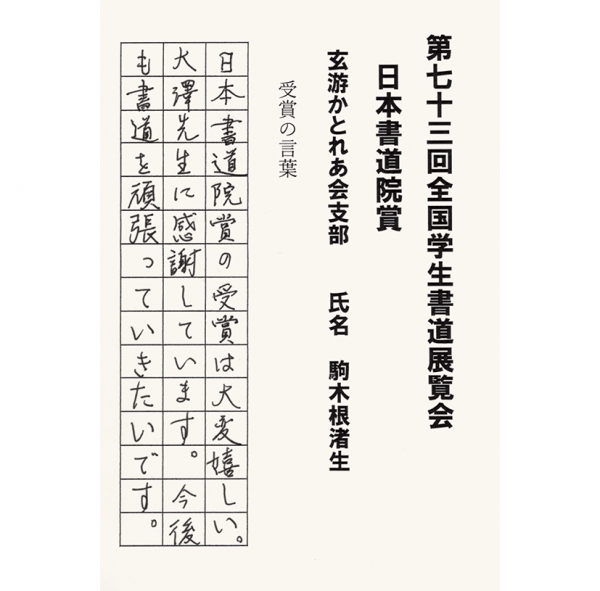 第七十三回全国学生書道展覧会
日本書道院賞
玄游かとれあ会支部　氏名　駒木根渚生
受賞の言葉
日本書道院賞の受賞は大変嬉しい。
大澤先生に感謝しています。今後
も書道を頑張っていきたいです。